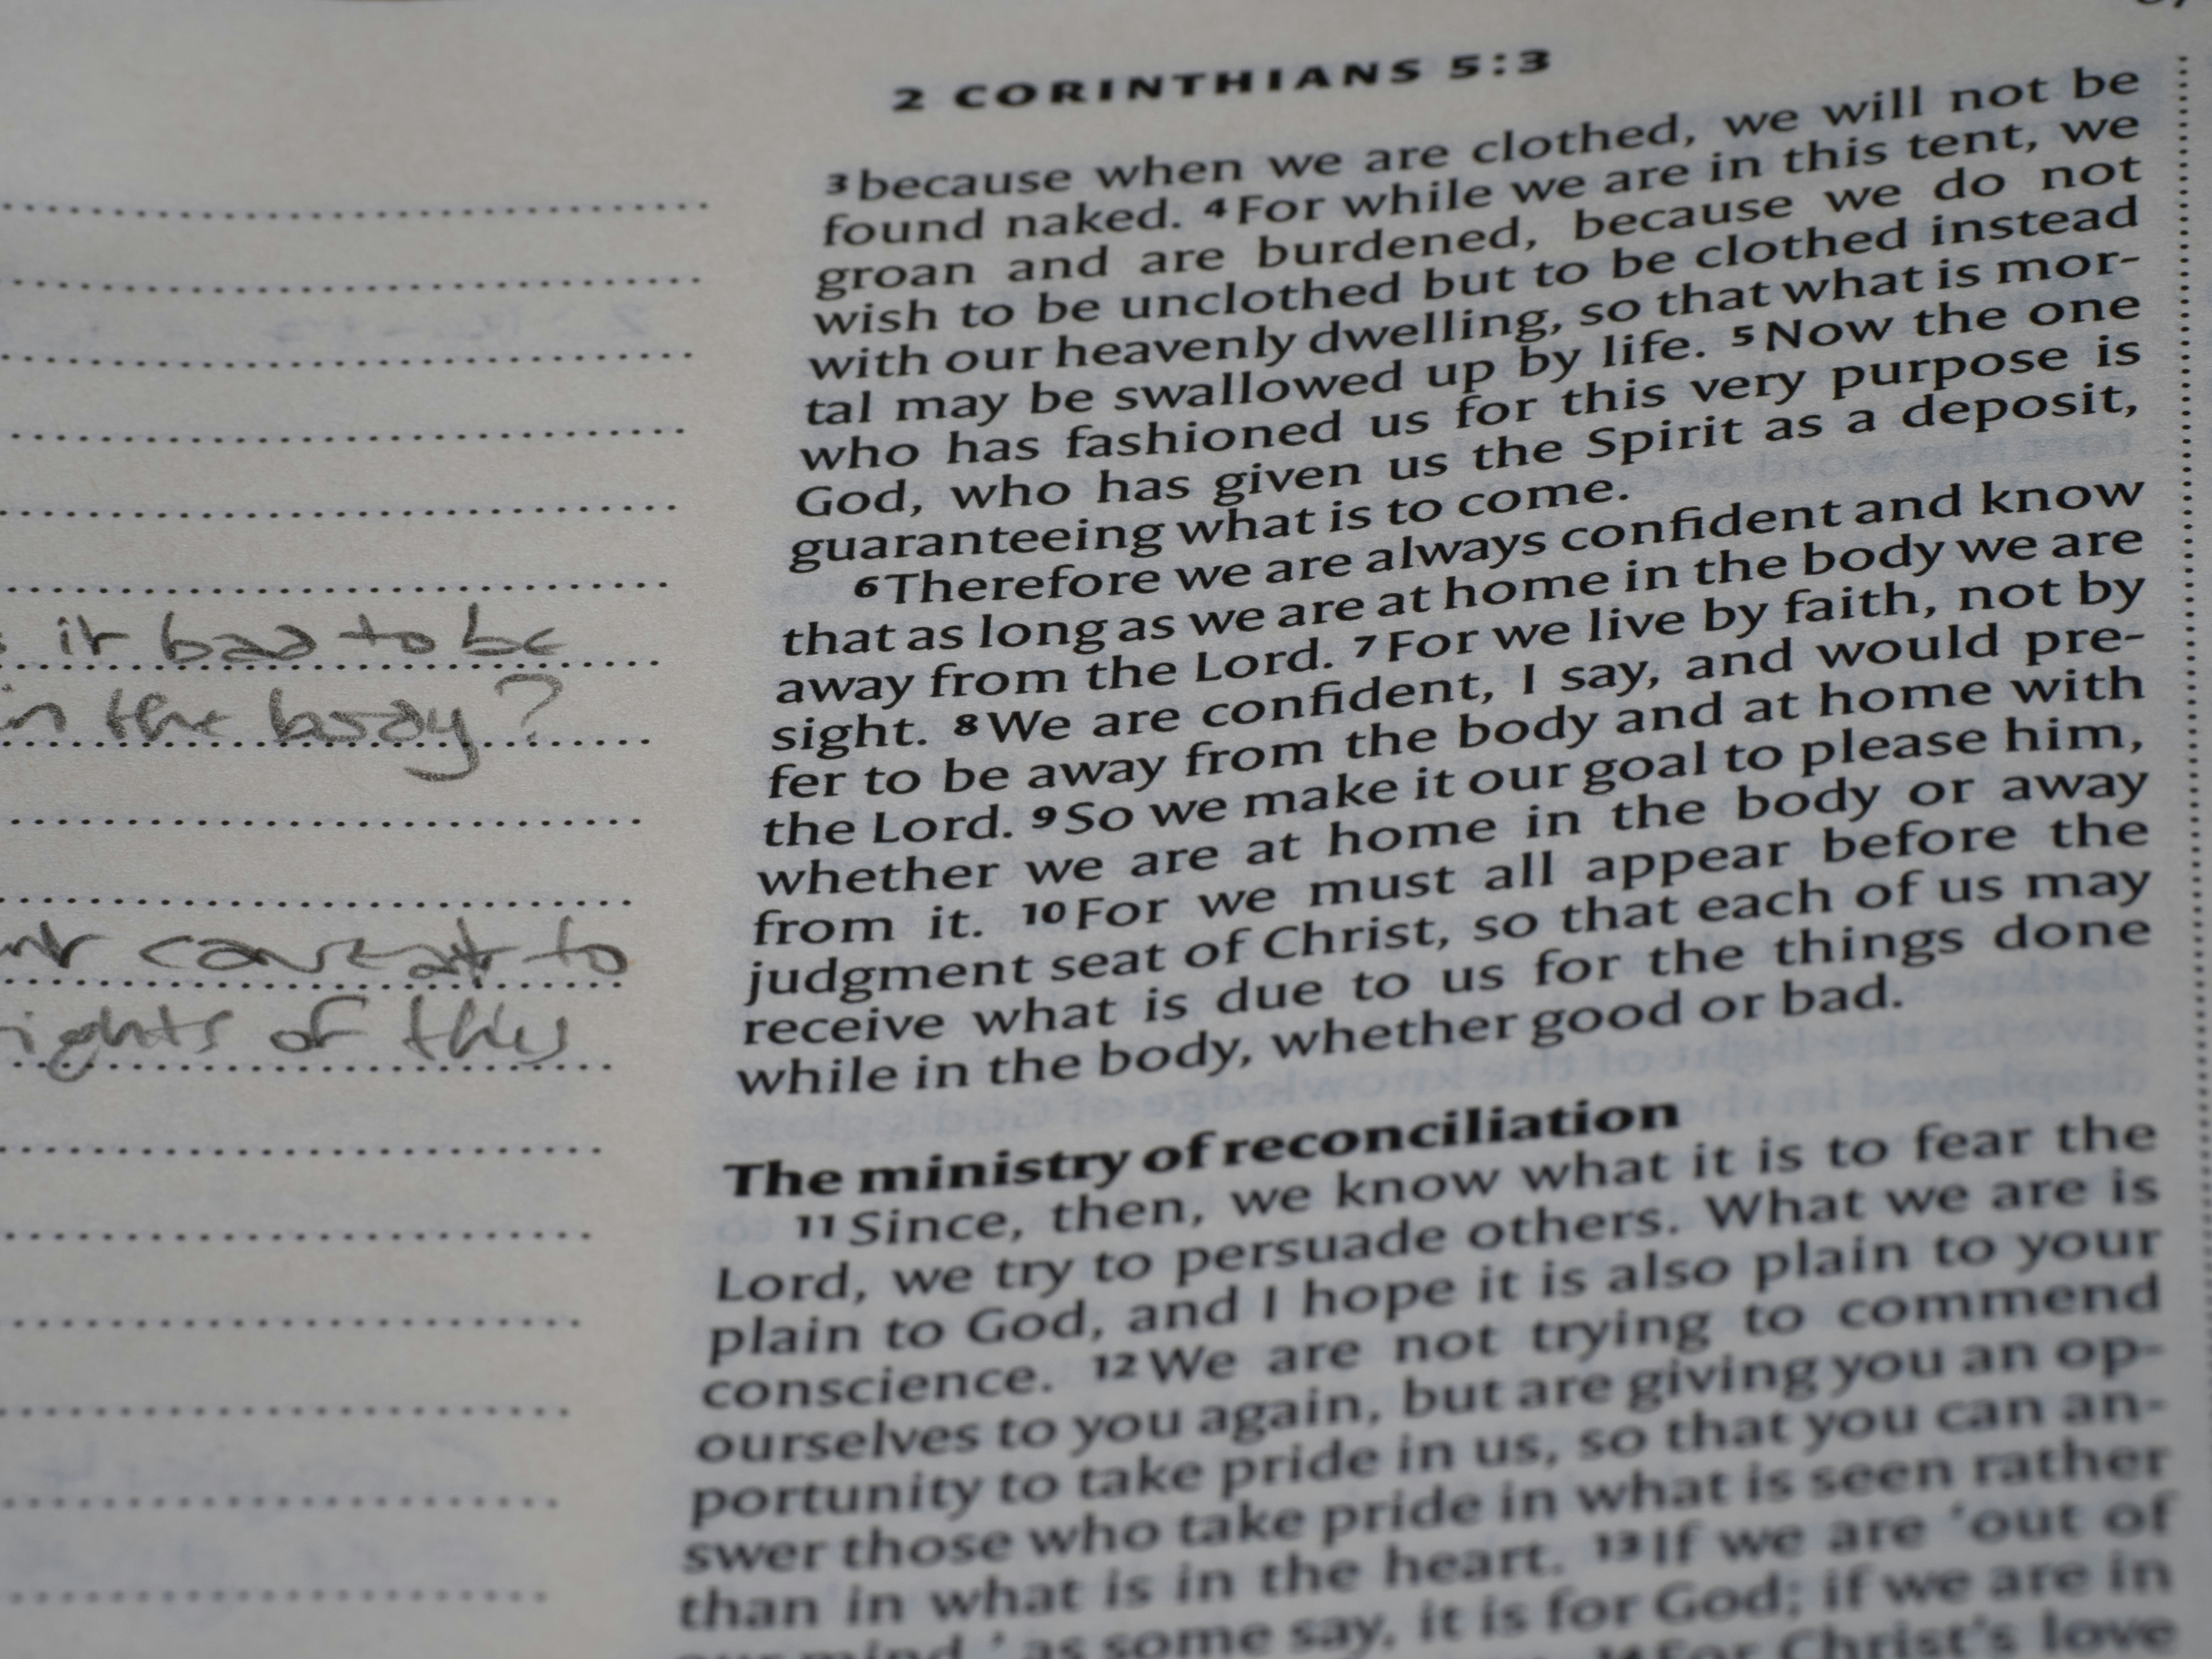 2 CORINTHIANS 5:3
3 because when we are clothed, we will not be
found naked. 4 For while we are in this tent, we
groan and are burdened, because we do not
wish to be unclothed but to be clothed instead
with our heavenly dwelling, so that what is mor-
tal may be swallowed up by life. 5 Now the one
who has fashioned us for this very purpose is
God, who has given us the Spirit as a deposit,
guaranteeing what is to come.
6 Therefore we are always confident and know
that as long as we are at home in the body we are
away from the Lord. 7 For we live by faith, not by
sight. 8 We are confident, I say, and would pre-
fer to be away from the body and at home with
the Lord. 9 So we make it our goal to please him,
whether we are at home in the body or away
from it. 10 For we must all appear before the
judgment seat of Christ, so that each of us may
receive what is due to us for the things done
while in the body, whether good or bad.
The ministry of reconciliation
11 Since, then, we know what it is to fear the
Lord, we try to persuade others. What we are is
plain to God, and I hope it is also plain to your
conscience. 12 We are not trying to commend
ourselves to you again, but are giving you an op-
portunity to take pride in us, so that you can an-
swer those who take pride in what is seen rather
than in what is in the heart. 13 If we are ‘out of
our mind,’ as some say, it is for God; if we are in
14 For Christ's love
it bad to be
in the body?
caveat to
of this